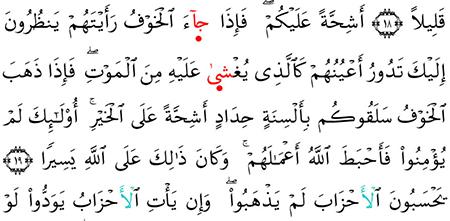 قَلِيلًا ﴿١٨﴾ أَشِحَّةً عَلَيْكُمْ ۖ فَإِذَا جَآءَ ٱلْخَوْفُ رَأَيْتَهُمْ يَنظُرُونَ
إِلَيْكَ تَدُورُ أَعْيُنُهُمْ كَٱلَّذِى يُغْشَىٰ عَلَيْهِ مِنَ ٱلْمَوْتِ ۖ فَإِذَا ذَهَبَ
ٱلْخَوْفُ سَلَقُوكُم بِأَلْسِنَةٍ حِدَادٍ أَشِحَّةً عَلَى ٱلْخَيْرِ ۚ أُو۟لَـٰٓئِكَ لَمْ
يُؤْمِنُوا۟ فَأَحْبَطَ ٱللَّهُ أَعْمَـٰلَهُمْ ۚ وَكَانَ ذَٰلِكَ عَلَى ٱللَّهِ يَسِيرًا ﴿١٩﴾
يَحْسَبُونَ ٱلْأَحْزَابَ لَمْ يَذْهَبُوا۟ ۖ وَإِن يَأْتِ ٱلْأَحْزَابُ يَوَدُّوا۟ لَوْ